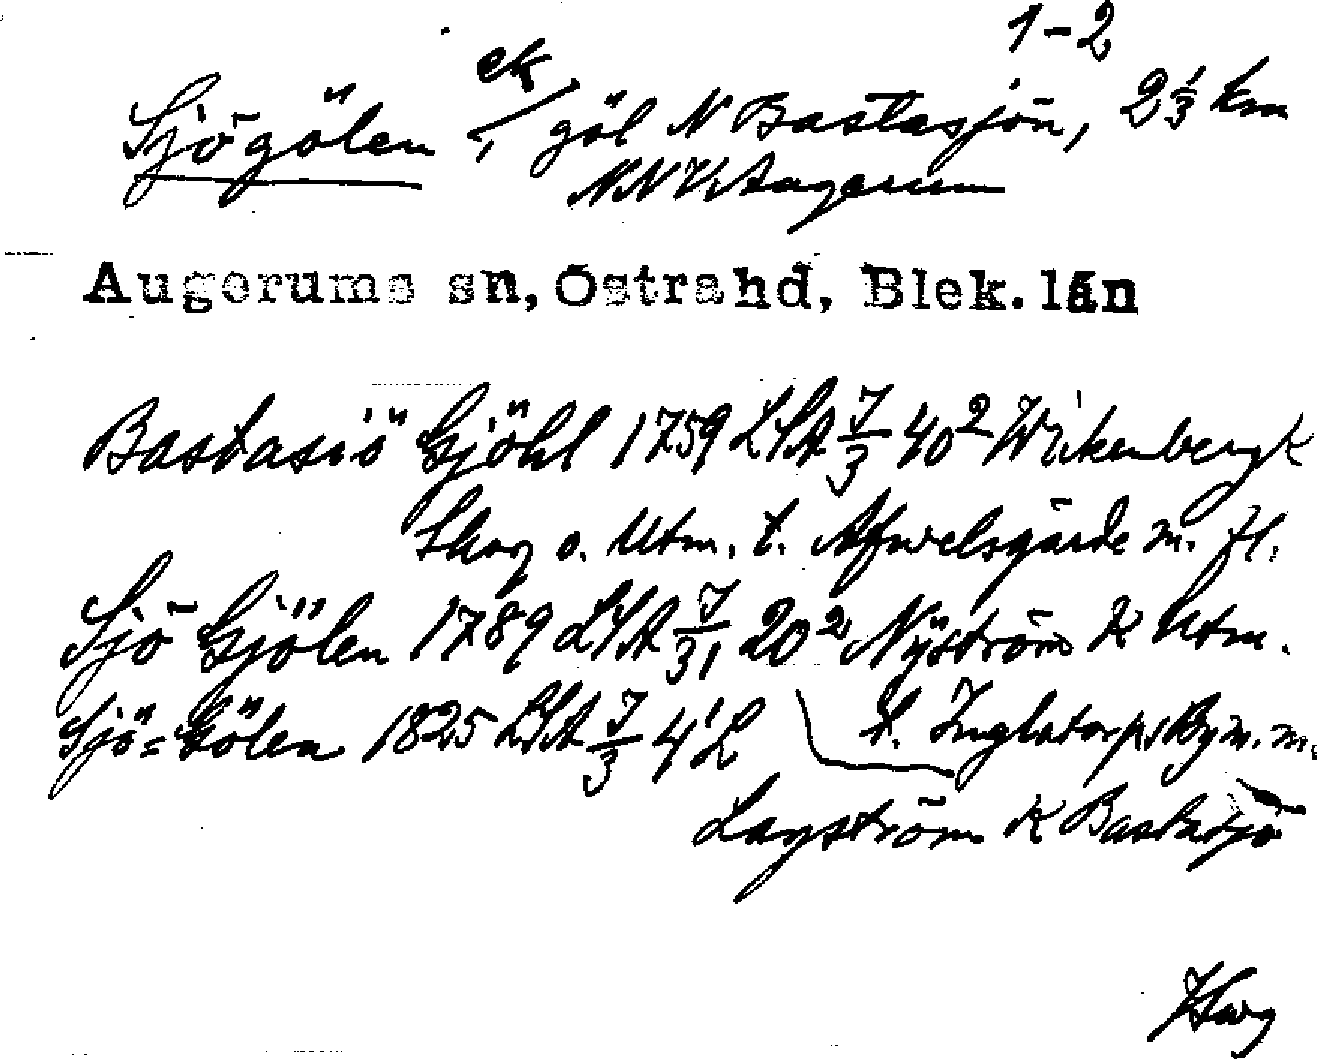 1-2
Sjögölen ek/, göl N Bastasjön, 2 1/3 km
NNV Augerum
Augerums sn, Östra hd, Blek. län
Bastasiö Gjöhl 1759 LSA 7/3 40² Wikenberg K
Skog o. Utm. t. Afvelsgärde m. fl.
Sjö Gjölen 1789 LSA 7/3, 20² Nyström K Utm.
t. Inglatorps By m. m.
Sjö=Gölen 1825 LSA 7/3 4¹ L
Lagström K Bastasjö